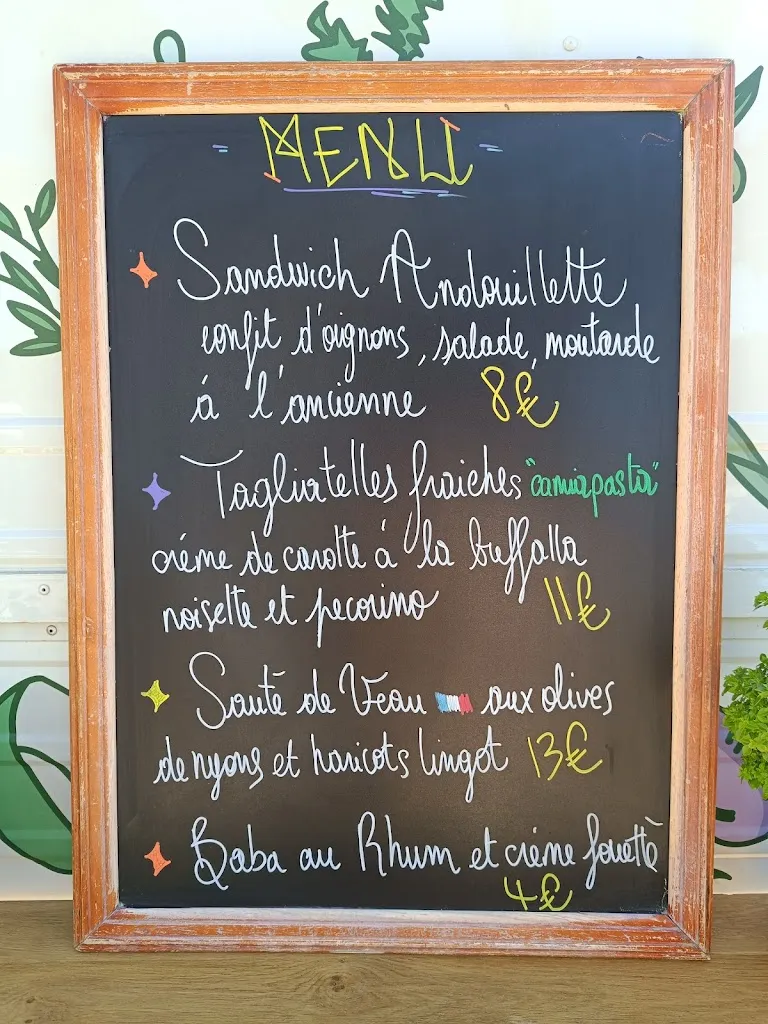 MENU
Sandwich Andouillette
confit d'oignons, salade, moutarde
à l'ancienne 8€
Tagliatelles fraiches "camiapasta"
crème de carotte à la buffalla
noisette et pecorino 11€
Sauté de Veau aux olives
de nyons et haricots lingot 13€
Baba au Rhum et crème fouetté
4€